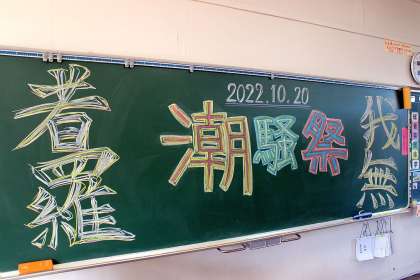 2022.10.20
潮騒祭
我無
着羅